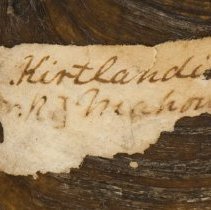 Kirtlandi
Mahon